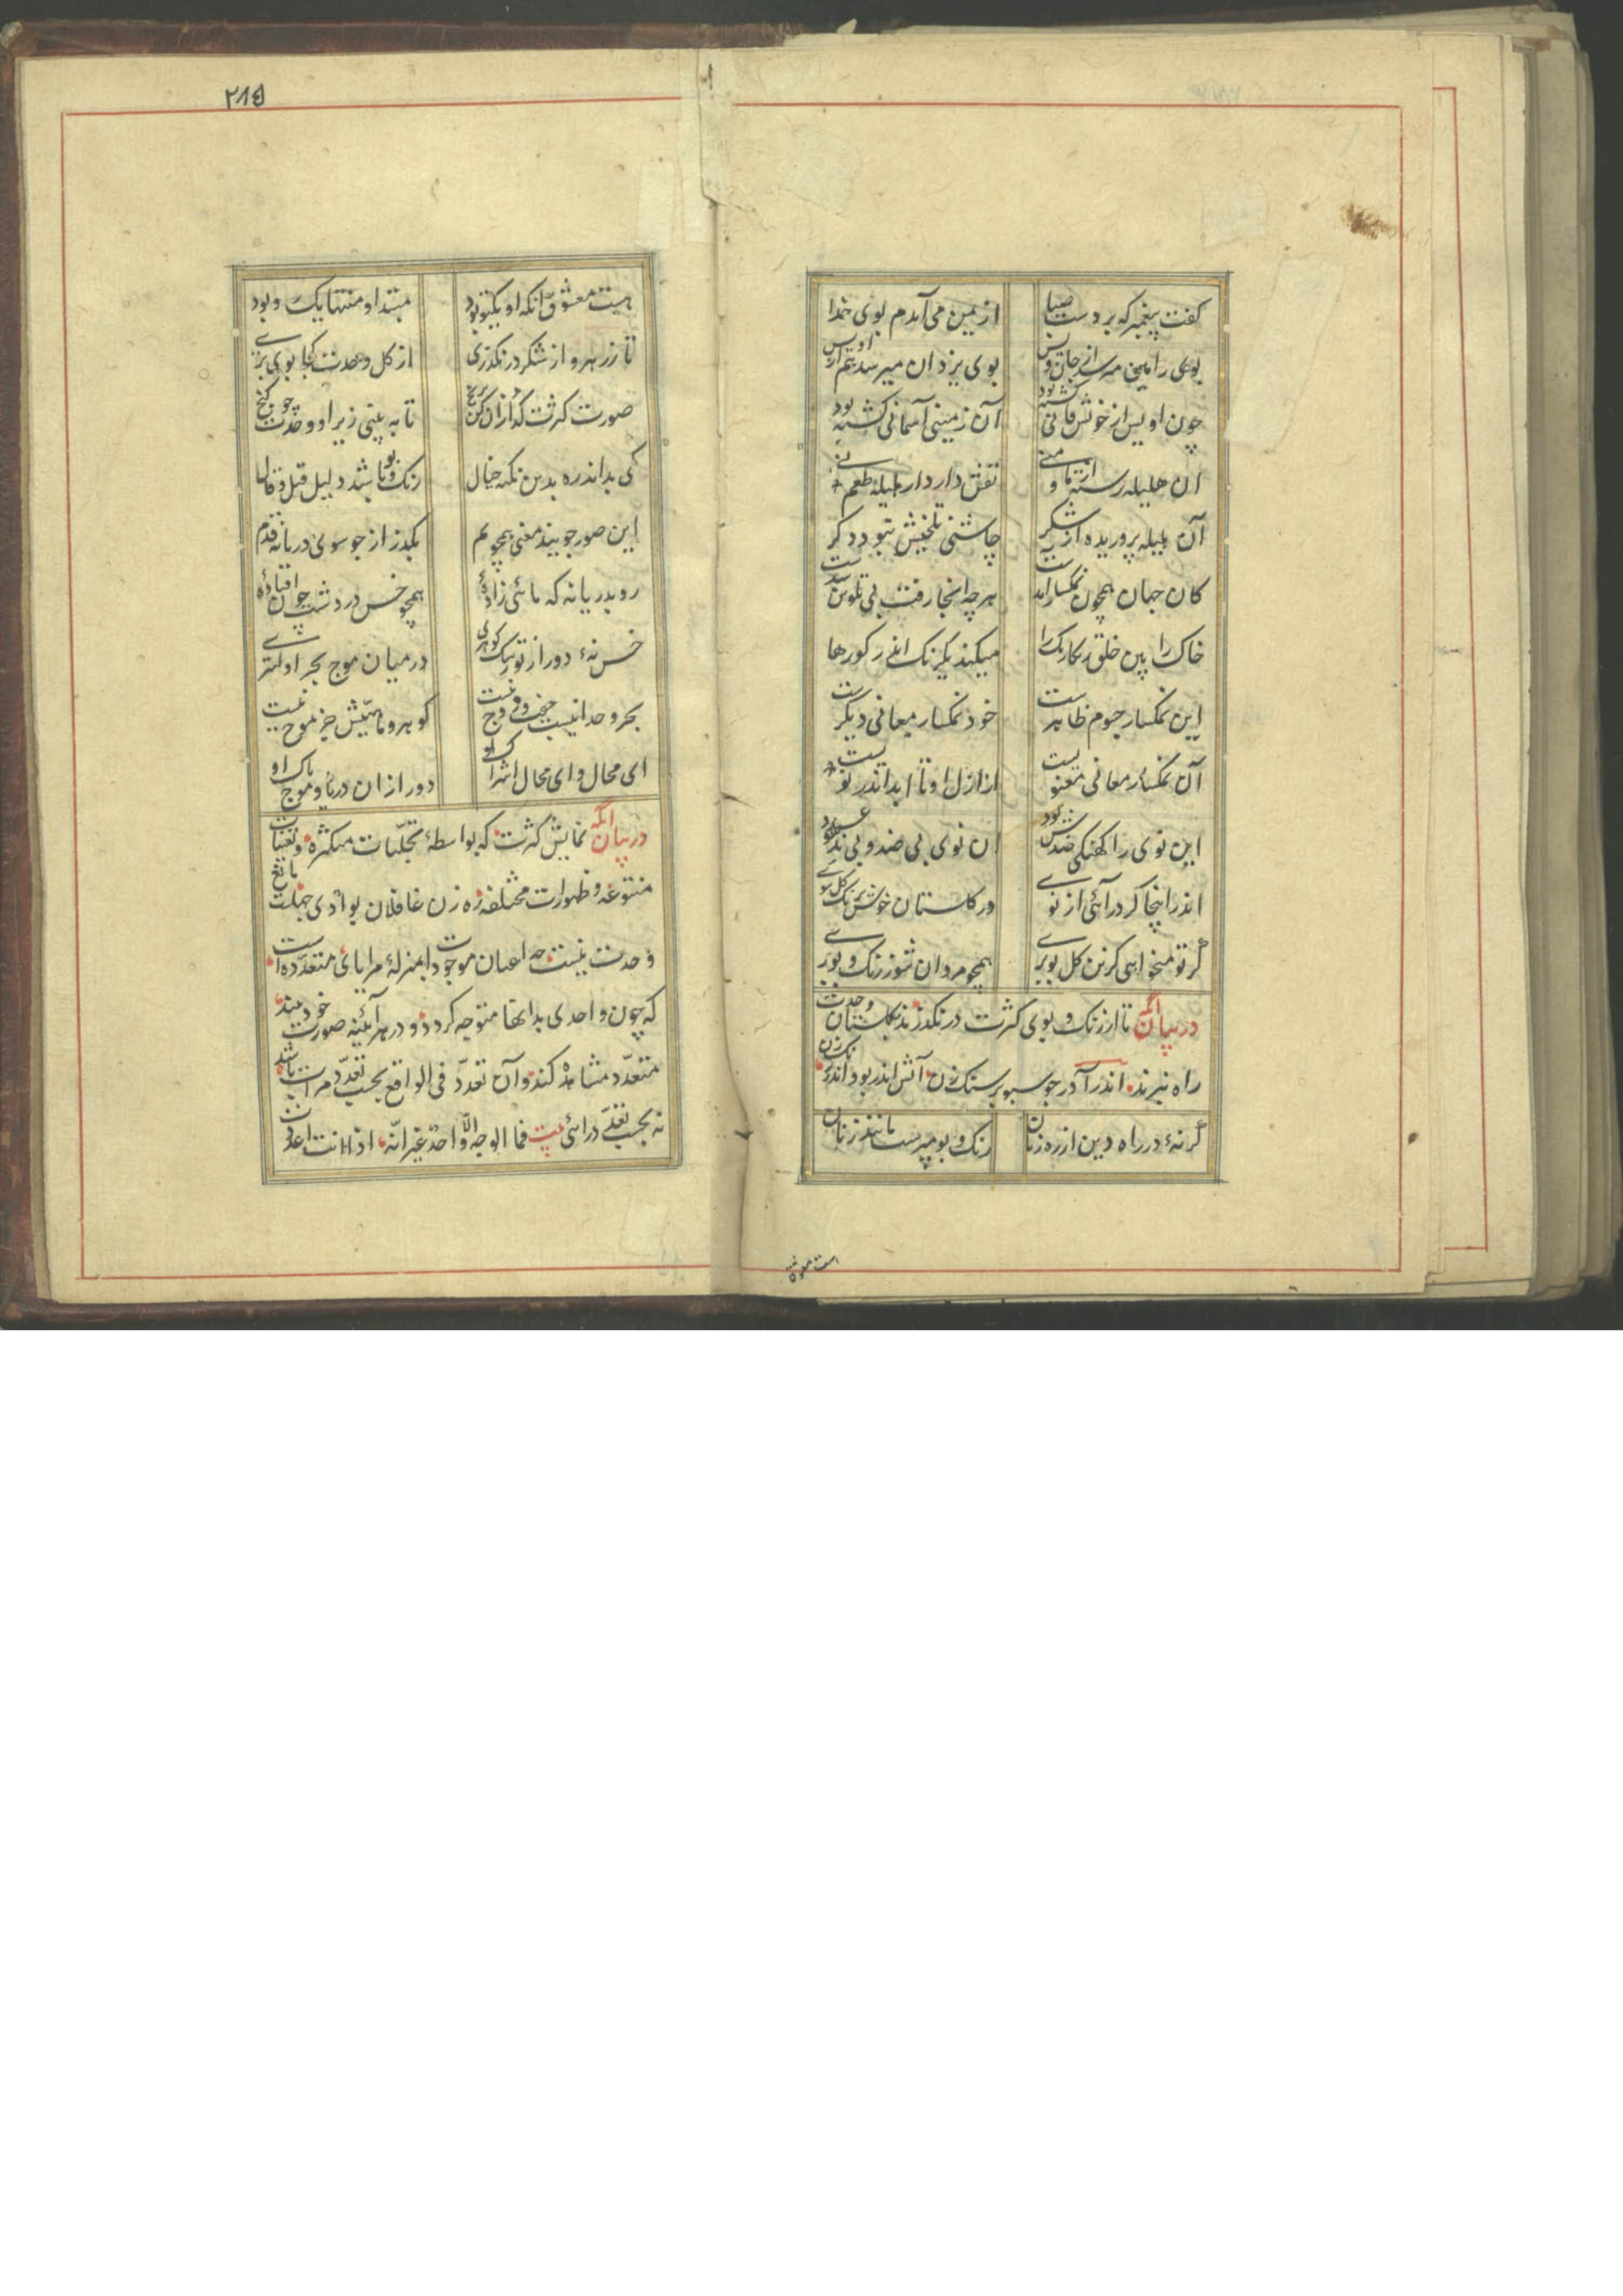 گفت پیغمبر که بر دست صبا از یمن می آیدم بوی خدا
بوی رامین میرسد از جان ویس بوی یزدان میرسد هم از اویس
چون اویس از خویش فانی گشته بود آن زمینی آسمانی گشته بود
آن هلیله رسته از ما و منی نقش دارد از هلیله طعم نی
آن هلیله پروریده از شکر چاشنی تلخیش نبود دگر
کان جهان همچون نمکسار آمدست هر چه آنجا رفت بی تلوین شدست
خاک را بین خلق رنگارنگ را میکند یکرنگ اندر گورها
این نمکسار جسوم ظاهرست خود نمکسار معانی دیگرست
آن نمکسار معانی معنویست از ازل او تا ابد اندر نویست
این نوی را کهنگی ضدش بود آن نوی بی ضد و بی ند و عدد
اندر اینجا گر درآئی از نوی در گلستان خوش برنگ گل شوی
گر تو میخواهی کزین گل بو بری همچو مردان شو ز رنگ و بو بری
در بیان آنکه تا از رنگ و بوی کثرت در نگذرند بگلستان وحدت
راه نبرند اندر آ در جو سبو بر سنگ زن آتش اندر بو و اندر رنگ زن
گر نهٔ در راه دین از ره زنان رنگ و بو مپرست مانند زنان
۲۸۵
هست معشوق آنکه او یکتو بود مبتدا و منتها یک و بود
تا ز زهر و از شکر در نگذری از گل وحدت کجا بوی بری
صورت کثرت گدازان کن برنج تا به بینی زیر او وحدت چو گنج
کی بداند ره بدین نکته خیال رنگ و بو باشد دلیل قیل و قال
این صور جو بیند معنی همچو یم بگذر از جو سوی دریا نه قدم
رو بدریا نه که ماهی زادهٔ همچو خس در دشت چون افتادهٔ
خس نهٔ دور از تو رشک گوهری در میان موج بحر اولیتری
بحر وحدانیست جفت و زوج نیست گوهر و ماهیش جز موج نیست
ای محال و ای محال اشراک او دور از ان دریا و موج پاک او
در بیان آنکه نمایش کثرت که بواسطهٔ تجلّیات متکثره و تعینات
متنوعه و ظهورات مختلفه ره زن غافلان بوادی جهلت مانع
وحدت نیست چه اعیان موجودات بمنزلهٔ مرایای متعدّده است
که چون واحدی بدانها متوجه گردد و در هر آئینه صورت خود بیند
متعدّد مشاهده کند و آن تعدّد فی الواقع بحسب تعدّد مرآت باشد
نه بحسب تعدّد رائی بیت فما الوجه الا واحد غیر انّه اذا انت اعددت